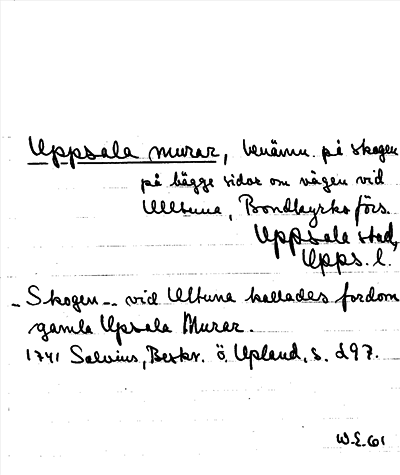 Uppsala murar, benämn. på skogen
på bägge sidor om vägen vid
Ulltuna, Bondkyrko förs.
Uppsala stad,
Upps. l.
- Skogen -- vid Ultuna kallades fordom
gamla Upsala Murar.
1741 Salvius, Beskr. ö. Upland, s. d97.
W.E. 61